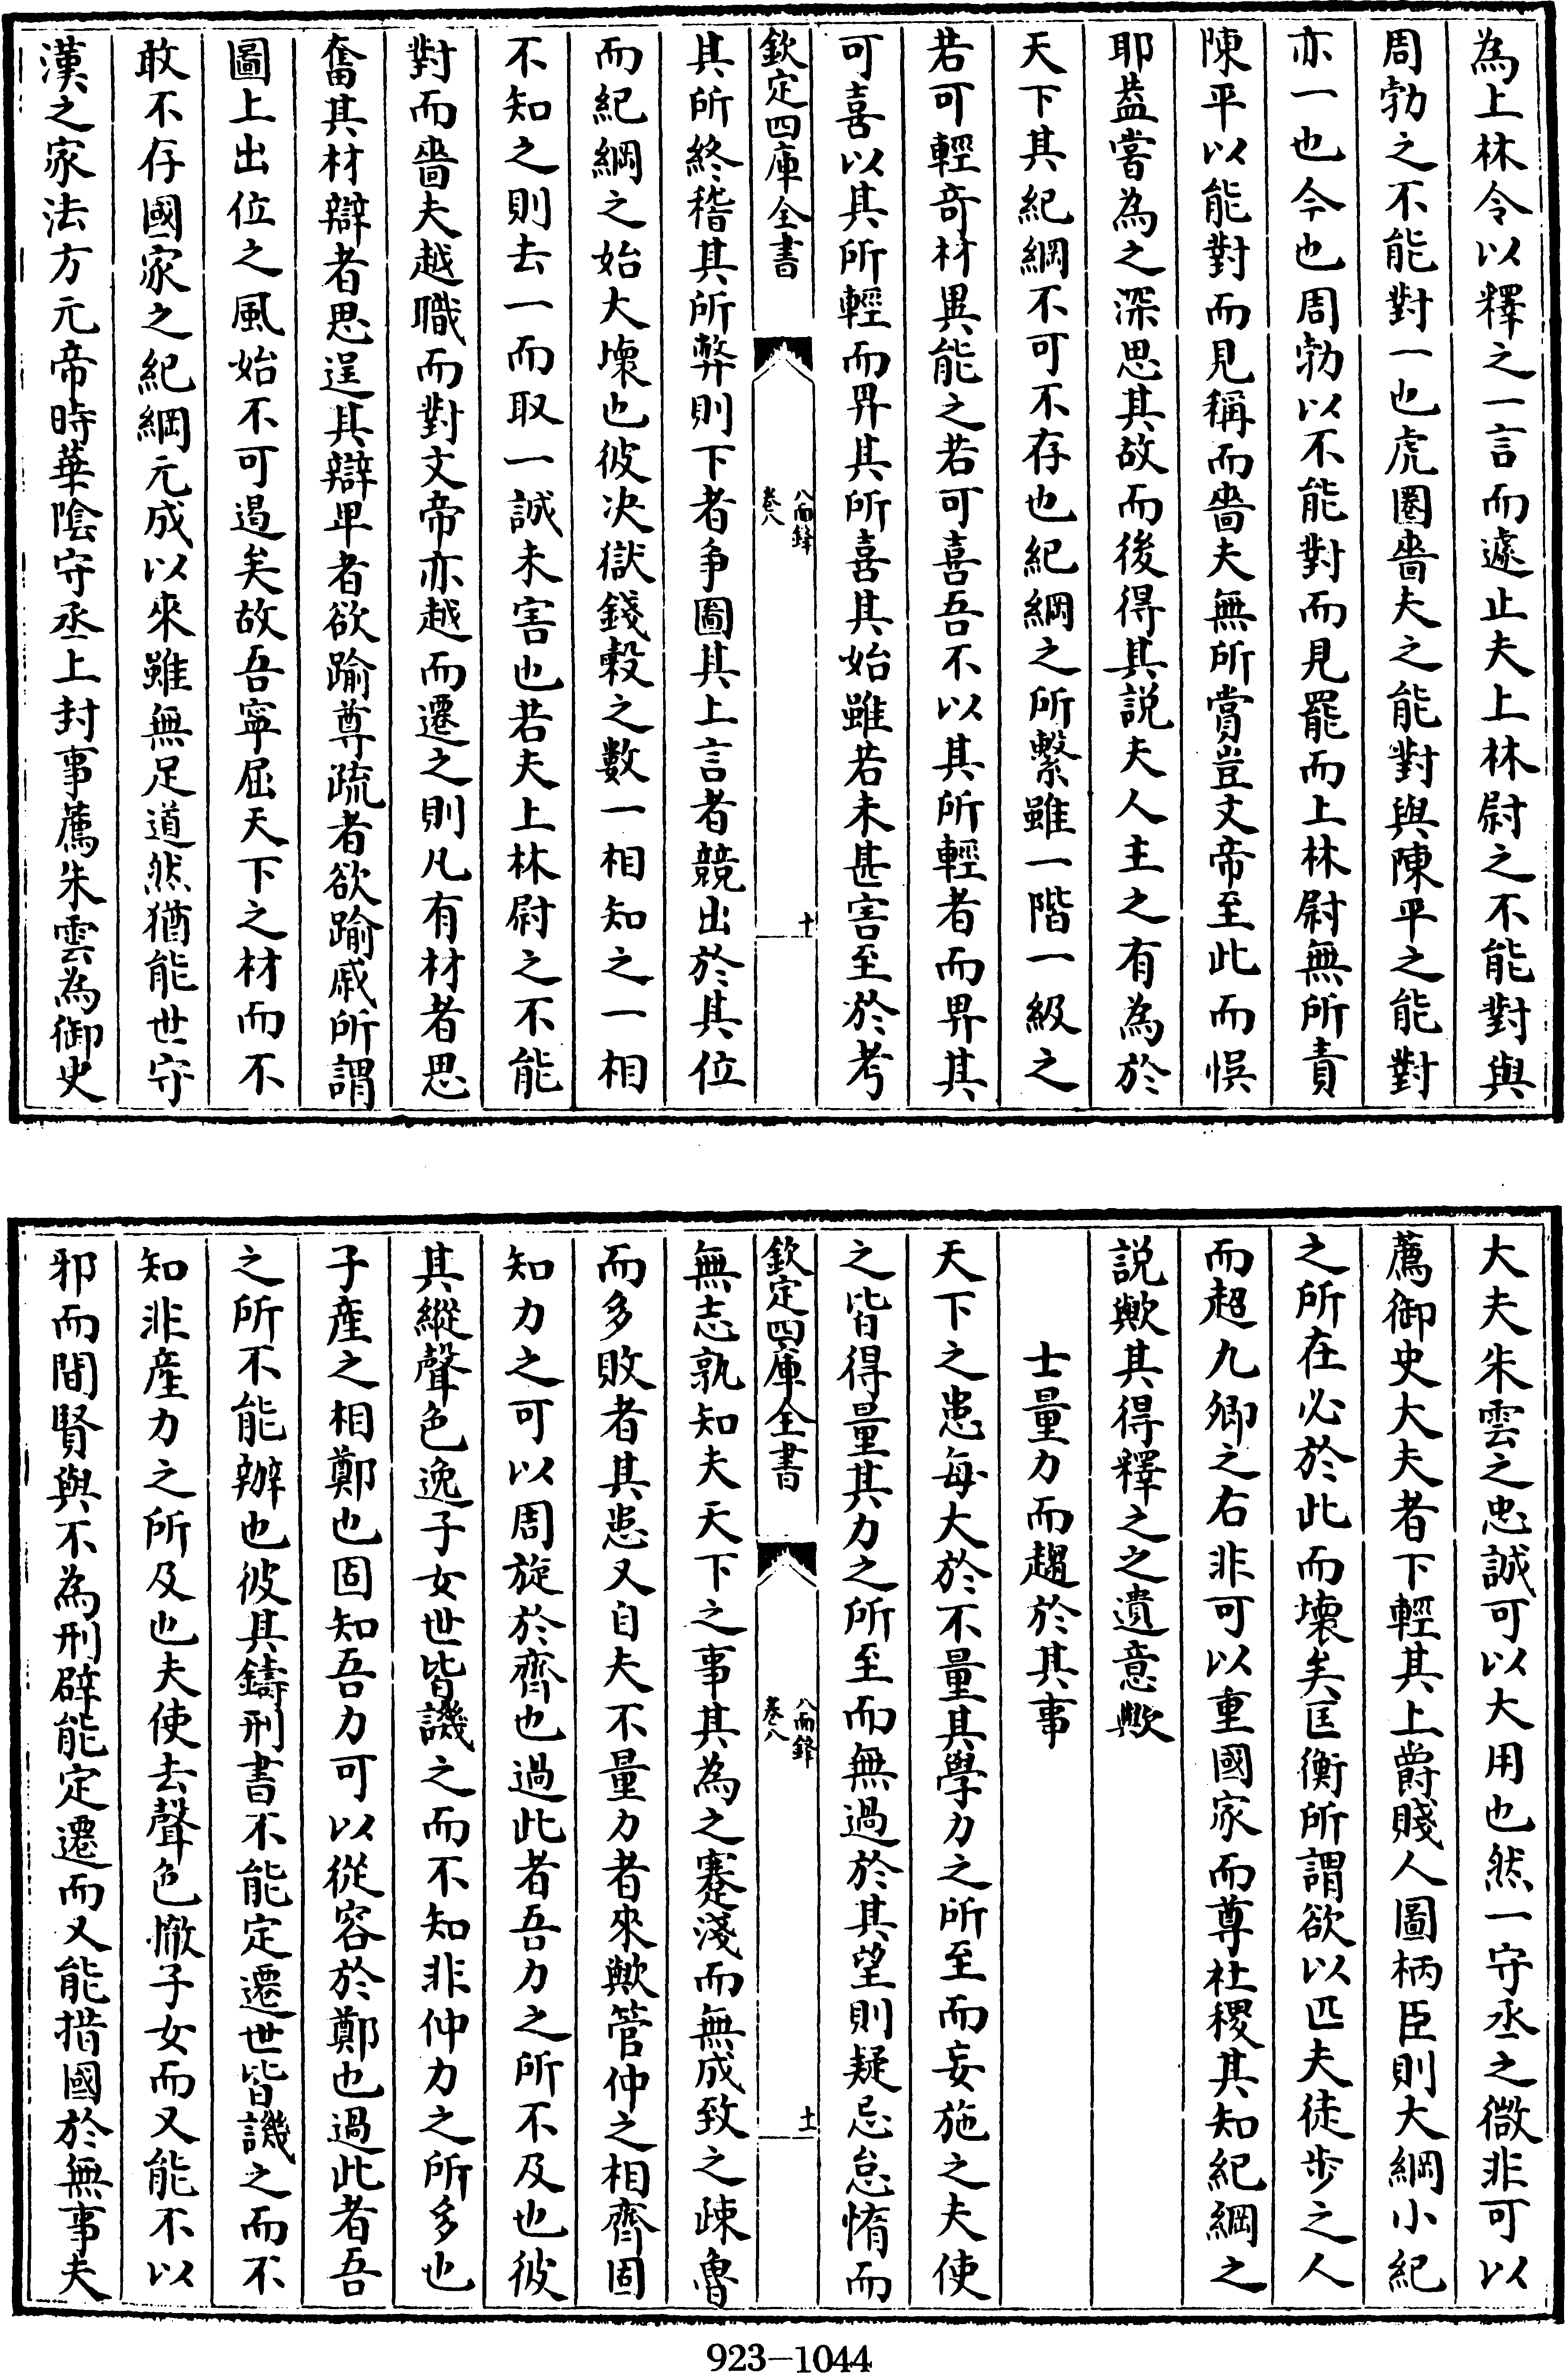 為上林令以釋之一言而遽止夫上林尉之不能對與
周勃之不能對一也虎圈嗇夫之能對與陳平之能對
亦一也今也周勃以不能對而見罷而上林尉無所責
陳平以能對而見稱而嗇夫無所賞豈文帝至此而悞
耶葢嘗為之深思其故而後得其説夫人主之有為於
天下其紀綱不可不存也紀綱之所繫雖一階一級之
若可輕奇材異能之若可喜吾不以其所輕者而畀其
可喜以其所輕而畀其所喜其始雖若未甚害至於考
欽定四庫全書
八面鋒
卷八
十
其所終稽其所弊則下者争圖其上言者競出於其位
而紀綱之始大壞也彼决獄錢榖之數一相知之一相
不知之則去一而取一誠未害也若夫上林尉之不能
對而嗇夫越職而對文帝亦越而遷之則凡有材者思
奮其材辯者思逞其辯卑者欲踰尊疏者欲踰戚所謂
圖上出位之風始不可遏矣故吾寧屈天下之材而不
敢不存國家之紀綱元成以來雖無足道然猶能世守
漢之家法方元帝時華隂守丞上封事薦朱雲為御史
大夫朱雲之忠誠可以大用也然一守丞之微非可以
薦御史大夫者下輕其上爵賤人圖柄臣則大綱小紀
之所在必於此而壞矣匡衡所謂欲以匹夫徒步之人
而超九卿之右非可以重國家而尊社稷其知紀綱之
説歟其得釋之之遺意歟
士量力而趨於其事
天下之患每大於不量其學力之所至而妄施之夫使
之皆得量其力之所至而無過於其望則疑忌怠惰而
欽定四庫全書
八面鋒
卷八
十一
無志孰知夫天下之事其為之蹇淺而無成致之疎魯
而多敗者其患又自夫不量力者來歟管仲之相齊固
知力之可以周旋於齊也過此者吾力之所不及也彼
其縱聲色逸子女世皆譏之而不知非仲力之所多也
子産之相鄭也固知吾力可以從容於鄭也過此者吾
之所不能辦也彼其鑄刑書不能定遷世皆譏之而不
知非産力之所及也夫使去聲色撤子女而又能不以
邪而間賢與不為刑辟能定遷而又能措國於無事夫
923-1044